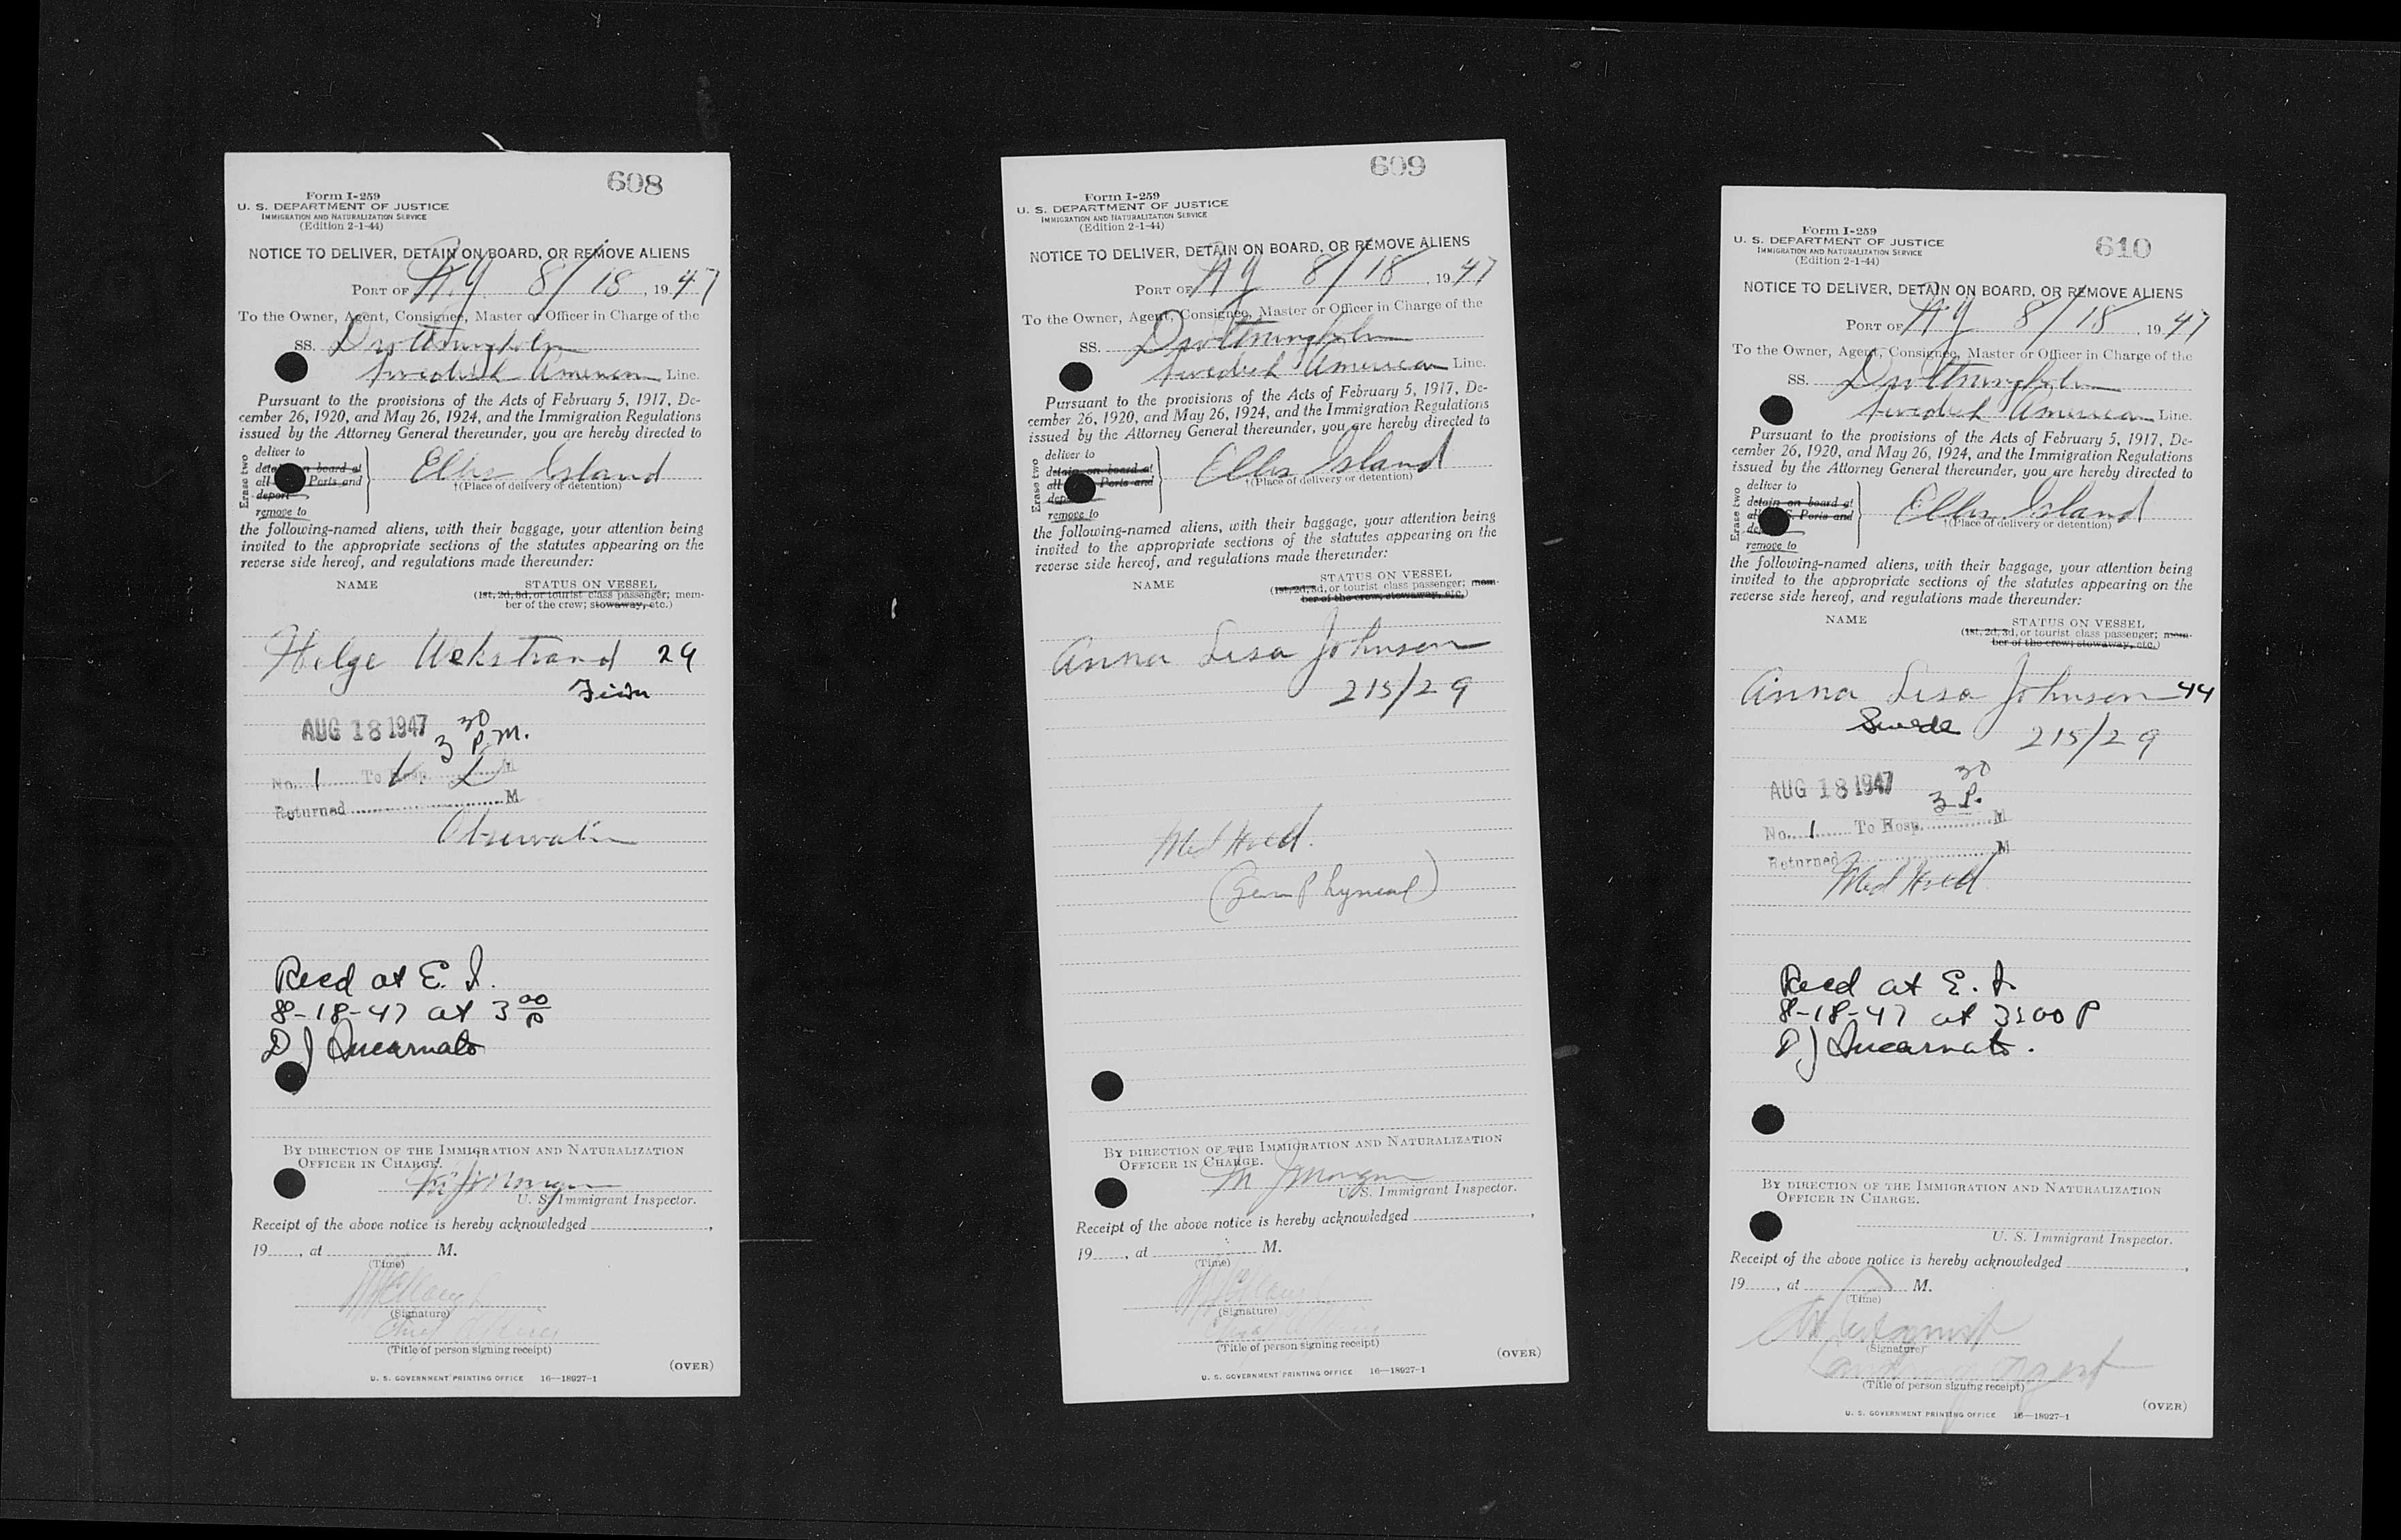 608
Form I-259
U. S. DEPARTMENT OF JUSTICE
IMMIGRATION AND NATURALIZATION SERVICE
(Edition 2-1-44)
NOTICE TO DELIVER, DETAIN ON BOARD, OR REMOVE ALIENS
PORT OF N.Y. 8/18, 1947
To the Owner, Agent, Consignee, Master or Officer in Charge of the
SS. Drottningholm
Swedish American Line.
Pursuant to the provisions of the Acts of February 5, 1917, De-
cember 26, 1920, and May 26, 1924, and the Immigration Regulations
issued by the Attorney General thereunder, you are hereby directed to
Erase two
deliver to
detain on board at
all Ports and
deport
remove to
Ellis Island
†(Place of delivery or detention)
the following-named aliens, with their baggage, your attention being
invited to the appropriate sections of the statutes appearing on the
reverse side hereof, and regulations made thereunder:
NAME STATUS ON VESSEL
(1st, 2d, 3d, or tourist class passenger; mem-
ber of the crew; stowaway, etc.)
Helge Wekstrand 29
Finn
AUG 18 1947 3 30 P.M.
No. 1 To Hosp. M
Returned M
Observation
Recd at E. I.
8-18-47 at 3 00 P
D J Incarnato
BY DIRECTION OF THE IMMIGRATION AND NATURALIZATION
OFFICER IN CHARGE.
M J Morgan
U. S. Immigrant Inspector.
Receipt of the above notice is hereby acknowledged ,
19 , at M.
(Time)
(Signature)
(Title of person signing receipt)
(OVER)
U. S. GOVERNMENT PRINTING OFFICE 16—18927-1
609
Form I-259
U. S. DEPARTMENT OF JUSTICE
IMMIGRATION AND NATURALIZATION SERVICE
(Edition 2-1-44)
NOTICE TO DELIVER, DETAIN ON BOARD, OR REMOVE ALIENS
PORT OF NY 8/18, 1947
To the Owner, Agent, Consignee, Master or Officer in Charge of the
SS. Drottningholm
Swedish American Line.
Pursuant to the provisions of the Acts of February 5, 1917, De-
cember 26, 1920, and May 26, 1924, and the Immigration Regulations
issued by the Attorney General thereunder, you are hereby directed to
Erase two
deliver to
detain on board at
all Ports and
remove to
Ellis Island
†(Place of delivery or detention)
the following-named aliens, with their baggage, your attention being
invited to the appropriate sections of the statutes appearing on the
reverse side hereof, and regulations made thereunder:
NAME STATUS ON VESSEL
(1st, 2d, 3d, or tourist class passenger; mem-
ber of the crew; stowaway, etc.)
Anna Lisa Johnson
215/29
Med Held.
(Gen Physical)
BY DIRECTION OF THE IMMIGRATION AND NATURALIZATION
OFFICER IN CHARGE.
M J Morgan
U. S. Immigrant Inspector.
Receipt of the above notice is hereby acknowledged ,
19 , at M.
(Time)
(Signature)
(Title of person signing receipt)
(OVER)
U. S. GOVERNMENT PRINTING OFFICE 16—18927-1
610
Form I-259
U. S. DEPARTMENT OF JUSTICE
IMMIGRATION AND NATURALIZATION SERVICE
(Edition 2-1-44)
NOTICE TO DELIVER, DETAIN ON BOARD, OR REMOVE ALIENS
PORT OF NY 8/18, 1947
To the Owner, Agent, Consignee, Master or Officer in Charge of the
SS. Drottningholm
Swedish American Line.
Pursuant to the provisions of the Acts of February 5, 1917, De-
cember 26, 1920, and May 26, 1924, and the Immigration Regulations
issued by the Attorney General thereunder, you are hereby directed to
Erase two
deliver to
detain on board at
all S. Ports and
remove to
Ellis Island
†(Place of delivery or detention)
the following-named aliens, with their baggage, your attention being
invited to the appropriate sections of the statutes appearing on the
reverse side hereof, and regulations made thereunder:
NAME STATUS ON VESSEL
(1st, 2d, 3d, or tourist class passenger; mem-
ber of the crew; stowaway, etc.)
Anna Lisa Johnson 44
Swede 215/29
AUG 18 1947 3 30 P.
No. 1 To Hosp. M
Returned M
Med Held
Recd at E. I.
8-18-47 at 3:00 P
D J Incarnato.
BY DIRECTION OF THE IMMIGRATION AND NATURALIZATION
OFFICER IN CHARGE.
U. S. Immigrant Inspector.
Receipt of the above notice is hereby acknowledged ,
19 , at M.
(Time)
(Signature)
Landing Agent
(Title of person signing receipt)
(OVER)
U. S. GOVERNMENT PRINTING OFFICE 16—18927-1